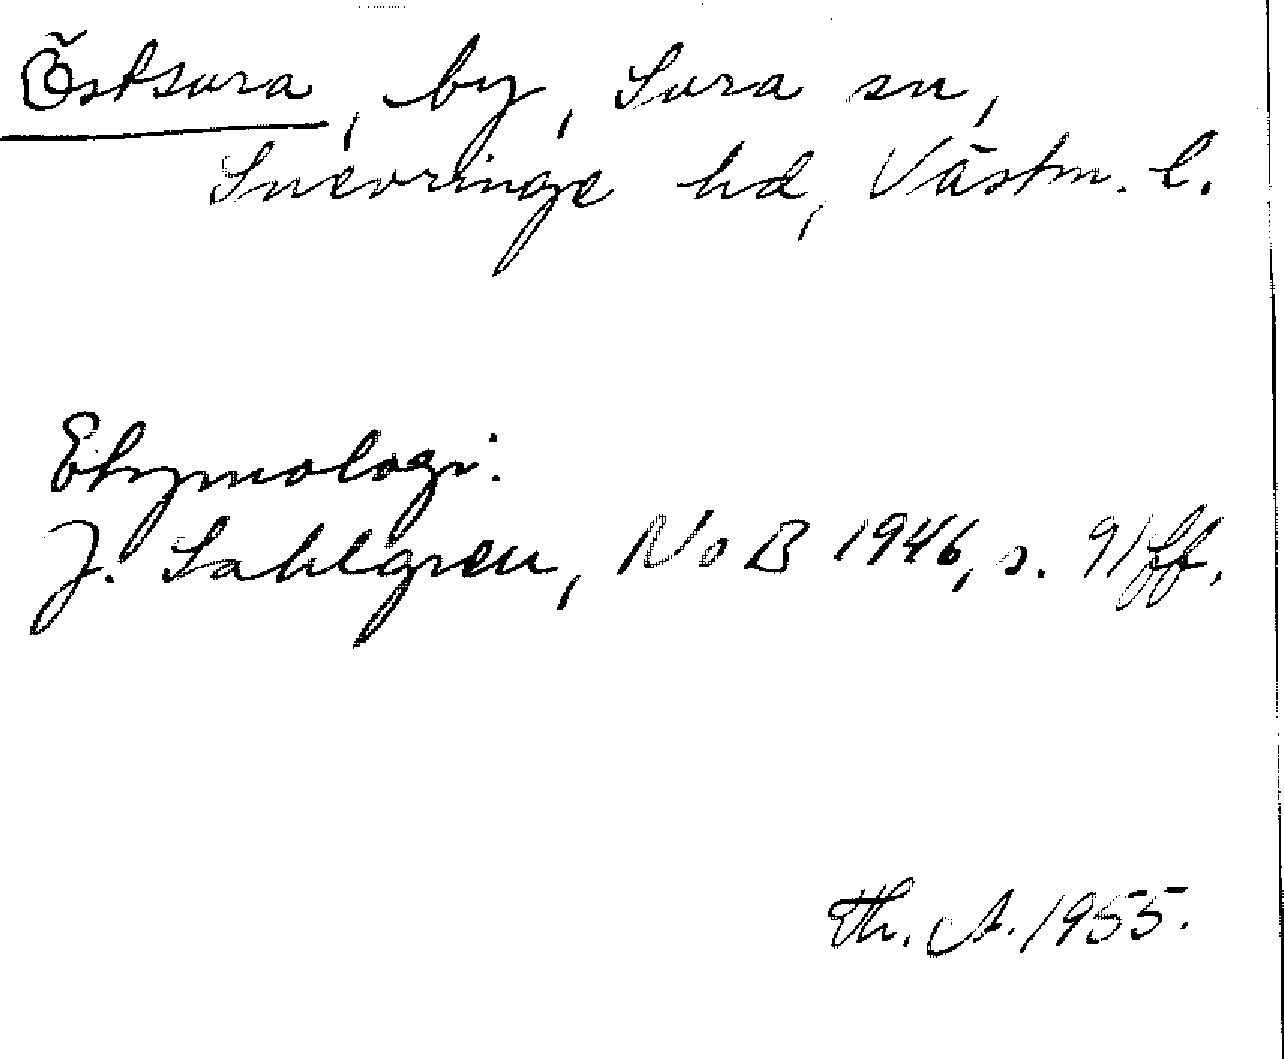 Östsura, by, Sura sn,
Snevringe hd, Västm. l.
Etymologi:
J. Sahlgren, NoB 1946, s. 91ff.
Th. A. 1955.